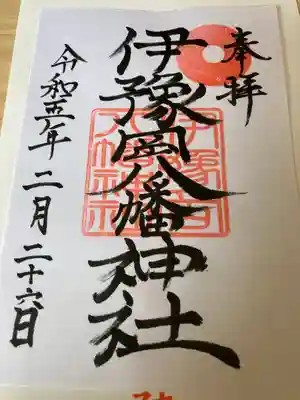 奉拝
伊豫岡八幡神社
令和五年二月二十六日